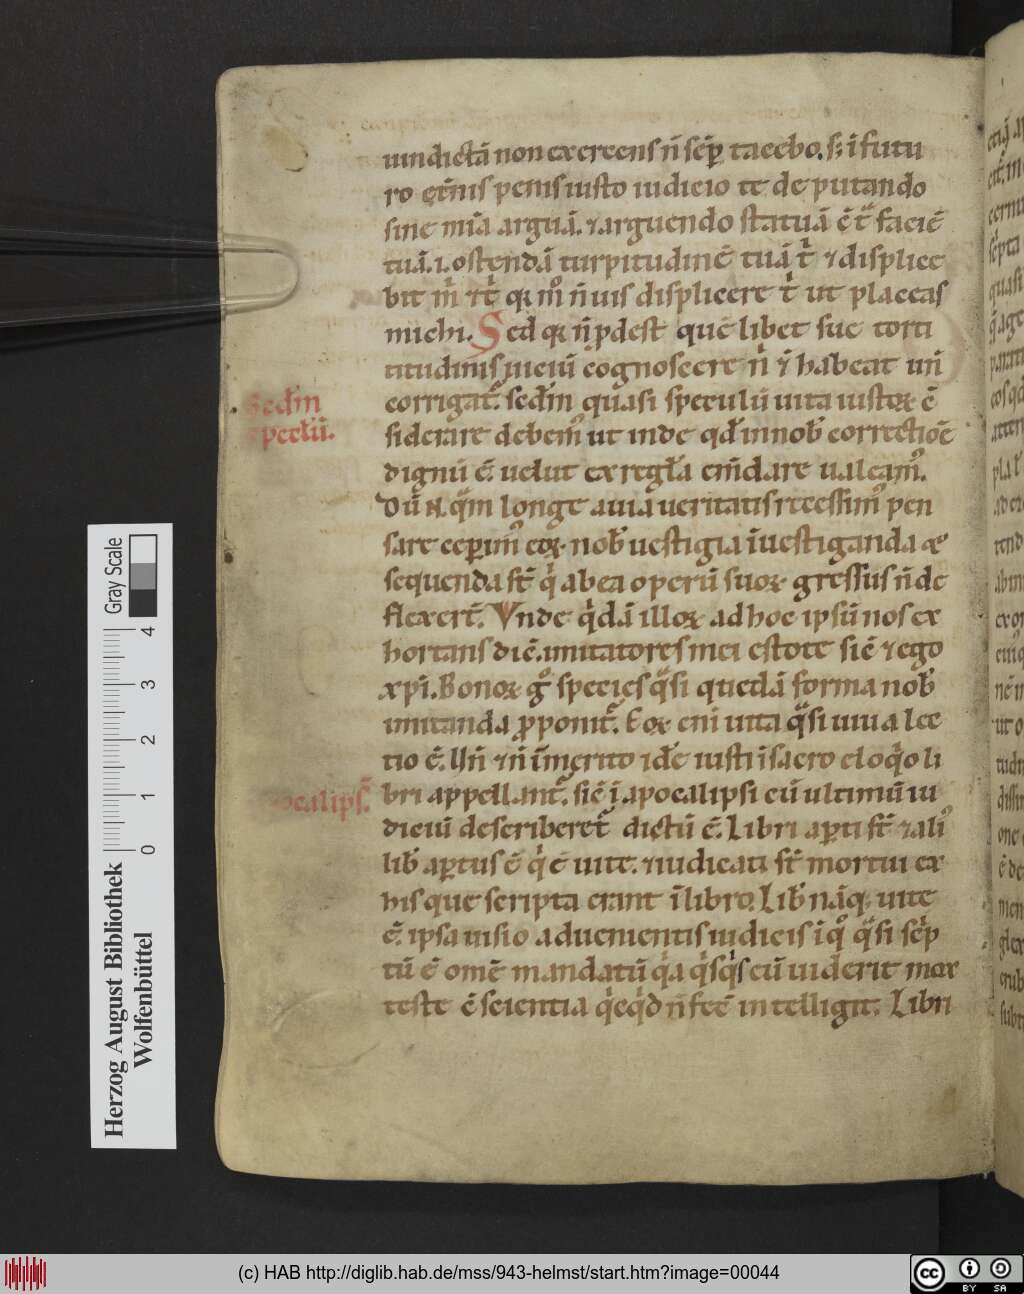 uindictā non exercens ñ sēp tacebo. s; ī futu
ro et̄nis penis iusto iudicio te deputando
sine mīa arguā. ⁊ arguendo statuā c̄ t̄ faciē
tuā. i. ostendā turpitudinē tuā t̄ ⁊ displice
bit m̄ ⁊ t̄ q̄ m̊ ñ uis displicere t̄ ut placeas
michi. Sed q̄ ñ pdest quē libet sue torti
titudinis uiciū cognoscere n̄ ⁊ habeat un̄
corrigat̄. sedm̄ quasi speculū uita iustoꝝ c̄
siderare debem᷒ ut inde qd̄ in nob̄ correctiōe
dignū ē. uelut ex regl̄a em̄dare ualeam᷒.
Dū N. qm̄ longe a uia ueritatis recessim᷒ pen
sare ceperim᷒ eoꝝ nob̄ uestigia īuestiganda ac
sequenda st̄ q̄ ab ea operū suoꝝ gressus ñ de
flexert̄. Vnde q̄dā illoꝝ ad hoc ipsū nos ex
hortans dic̄. imitatores mei estote sic̄ ⁊ ego
xp̄i. Bonoꝝ g̊ species q̄si quedā forma nob̄
imitanda proponit̄. Eoꝝ eni uita q̄si uiua lec
tio ē. Un̄ ⁊ ñ īmerito idc̄e iusti ī sacro eloq̄o li
bri appellant̄. sic̄ ī apocalipsi cū ultimū iu
diciū describeret̄ dictū ē. Libri apti st̄ ⁊ ali᷒
lib̄ aptus ē q̄ ē uite. ⁊ iudicati st̄ mortui ex
his que scripta erant ī libro. Lib̄ nāq; uite
ē. ipsa uisio aduenientis iudicis ī q̊ q̄si sc̄p
tū ē om̄e mandatū q̄a q̄sq̄s eū uiderit mox
teste c̄scientia q̄cq̄d ñ fec̄ intelligit. Libri
Sedm̄
specl̄ū.
ocalips̄.
Herzog August Bibliothek
Wolfenbüttel
Gray Scale
0 1 2 3 4
(c) HAB http://diglib.hab.de/mss/943-helmst/start.htm?image=00044
cc BY SA